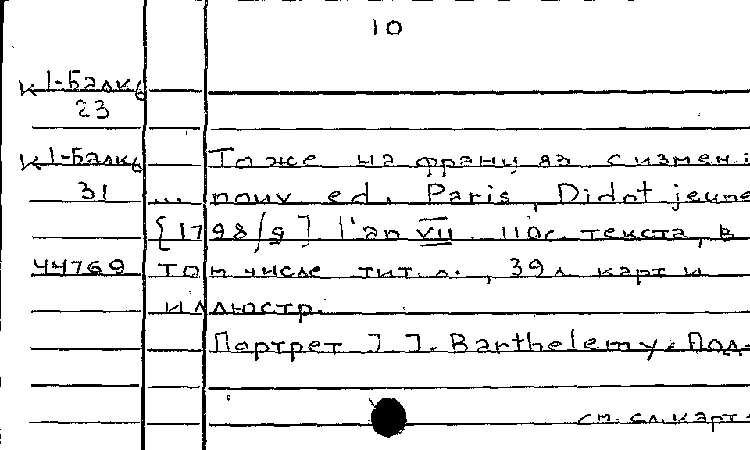 10
К 1-Балк6
23
К 1-Балк6 То же на франц яз с измен:
31 ... nouv ed. Paris, Didot jeune
[1798/9] l'an VII. 110с. текста, в
44769 том числе тит. л., 39л карт и
иллюстр.
Портрет J J. Barthelemy. Под-
см. сл. карт.